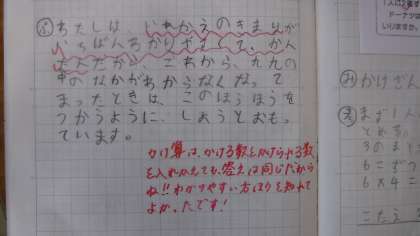 ふ わたしは、いれかえのきまりが
いちばんわかりやすくて、かん
たんだから、これから、九九の
中のなかがわからなくなって
しまったときは、このほうほうを
つかうように、しようとおもっ
ています。
かけ算は、かける数とかけられる数
を入れかえても、答えは同じだから
ね!!わかりやすい方ほうを知れて
よかったです!
み かけざん
ドーナツは
いりますか。
まず1人
とめる
3のま
6こずつ
6×4こ